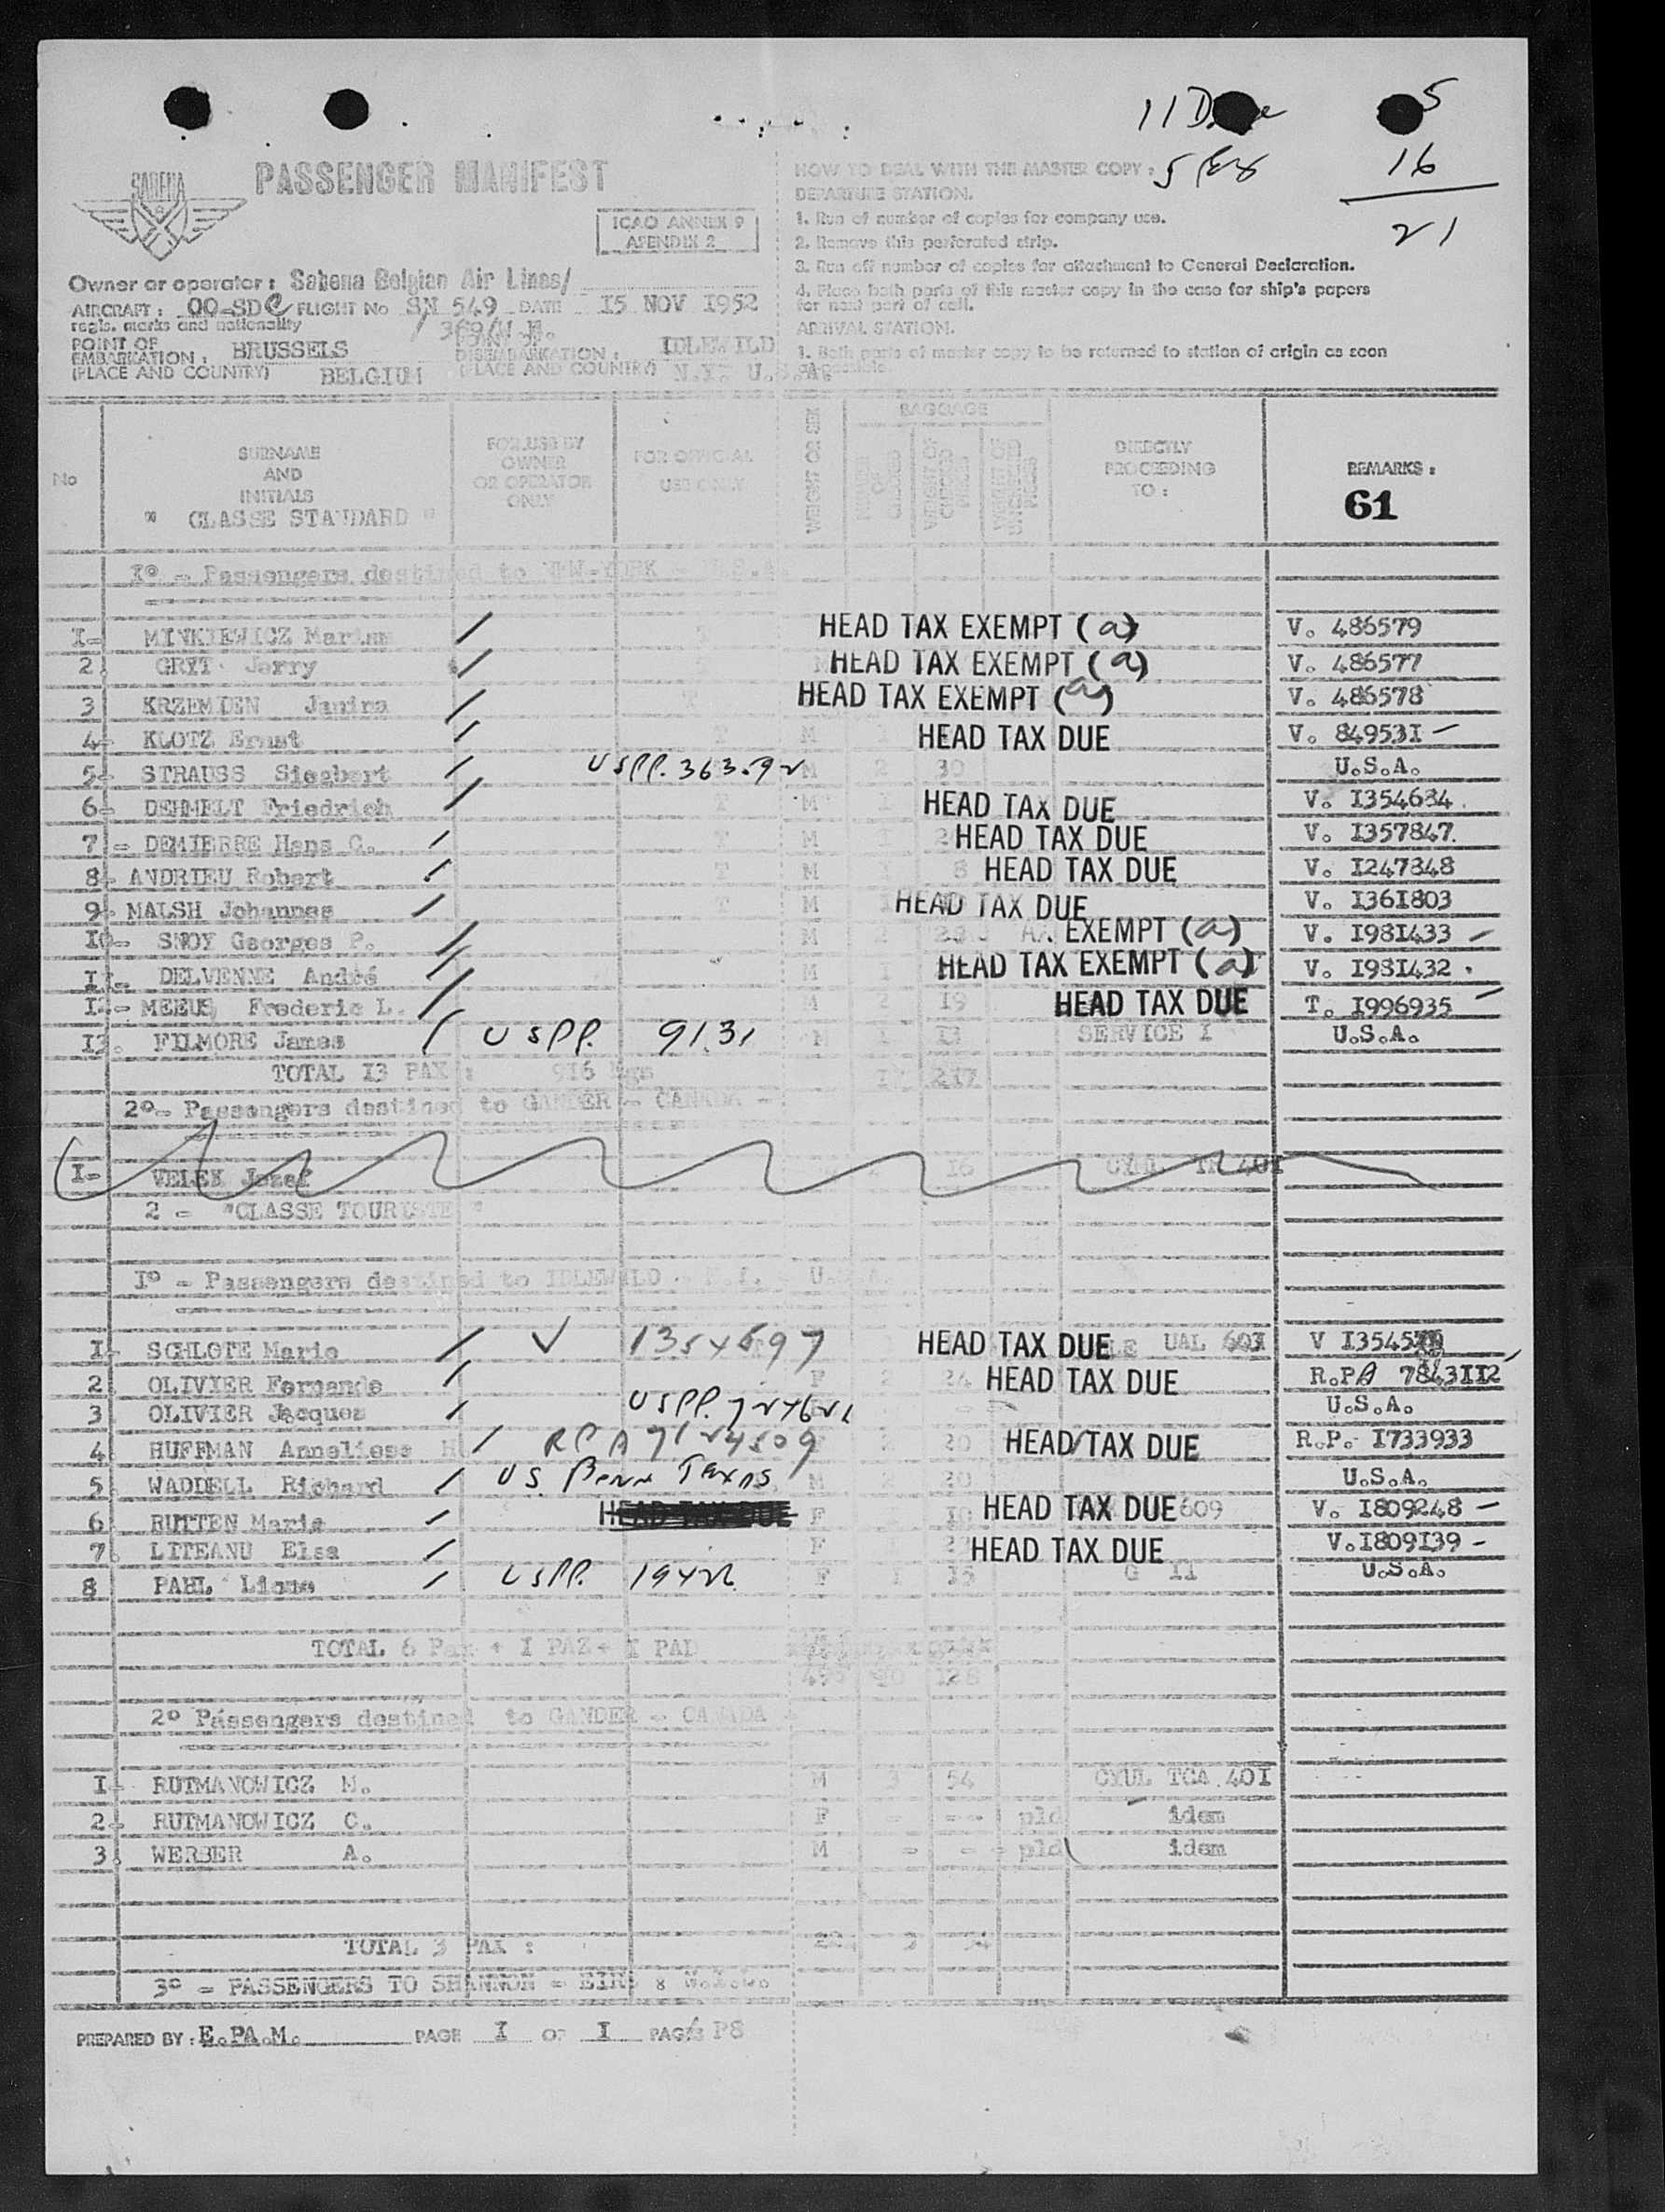 11 Due 5
5 16
21
SABENA
PASSENGER MANIFEST
ICAO ANNEX 9
APENDIX 2
HOW TO DEAL WITH THE MASTER COPY :
DEPARTURE STATION.
1. Run of number of copies for company use.
2. Remove this perforated strip.
3. Run off number of copies for attachment to General Declaration.
4. Place both parts of this master copy in the case for ship's papers
for next port of call.
ARRIVAL STATION.
1. Both parts of master copy to be returned to station of origin as soon
as possible.
Owner or operator : Sabena Belgian Air Lines/
AIRCRAFT : OO-SDC FLIGHT No SN 549 DATE 15 NOV 1952
regis. marks and nationality
POINT OF EMBARKATION : BRUSSELS
(PLACE AND COUNTRY) BELGIUM
POINT OF DISEMBARKATION : IDLEWILD
(PLACE AND COUNTRY) N.Y. U.S.A.
No
SURNAME
AND
INITIALS
" CLASSE STANDARD "
FOR USE BY
OWNER
OR OPERATOR
ONLY
FOR OFFICIAL
USE ONLY
WEIGHT OR SEX
BAGGAGE
DIRECTLY
PROCEEDING
TO :
REMARKS :
61
I° - Passengers destined to NEW-YORK - U.S.A.
I- MINKIEWICZ Marian / HEAD TAX EXEMPT (a) V. 486579
2 GRYT Jerry / HEAD TAX EXEMPT (a) V. 486577
3 KRZEMDEN Janina / T HEAD TAX EXEMPT (a) V. 486578
4- KLOTZ Ernst / T M HEAD TAX DUE V. 849531 -
5- STRAUSS Siegbert / USPP. M 2 30 U.S.A.
6- DEHMELT Friedrich / T M HEAD TAX DUE V. I354684
7 - DEMIERRE Hans C. / T M HEAD TAX DUE V. I357847.
8- ANDRIEU Robert / T M 8 HEAD TAX DUE V. I247848
9- MALSH Johannes / T M HEAD TAX DUE V. I361803
I0- SNOY Georges P. / M 2 AX EXEMPT (a) V. I981433 -
II- DELVENNE André / M HEAD TAX EXEMPT (a) V. I981432 .
I2- MEEUS Frederic L. / M 2 19 HEAD TAX DUE T. I996935 -
I3. FILMORE James / USPP. 9131 M 1 13 SERVICE I U.S.A.
TOTAL I3 PAX : 916 kgs 217
2°- Passengers destined to GANDER - CANADA -
I- VELEK Jozef 16
2 - "CLASSE TOURISTE "
I° - Passengers destined to IDLEWILD - N.Y. - U.S.A.
I- SCHLOTE Marie / V 1354597 HEAD TAX DUE UAL 603 V I3545
2 OLIVIER Fernande / F 2 24 HEAD TAX DUE R.PA 7843II2
3 OLIVIER Jacques / USPP. U.S.A.
4 HUFFMAN Anneliese H / RPA 7124509 20 HEAD TAX DUE R.P. I733933
5 WADDELL Richard / US. Texas M 2 20 U.S.A.
6 RUTTEN Marie / HEAD TAX DUE F 10 HEAD TAX DUE 609 V. I809248 -
7 LITEANU Elsa / F HEAD TAX DUE V.I809I39 -
8 PAHL Liane / USPP. F 1 15 G 11 U.S.A.
TOTAL 6 Pax + I PAZ+ I PAD
128
2° Passengers destined to GANDER - CANADA -
I- RUTMANOWICZ M. M 3 54 CYUL TCA 40I
2- RUTMANOWICZ C. F - -- pld idem
3 WERBER A. M - - pld idem
TOTAL 3 PAX : 3 54
3° - PASSENGERS TO SHANNON = EIRE :
PREPARED BY : E.PA.M. PAGE I OF I PAGES P8